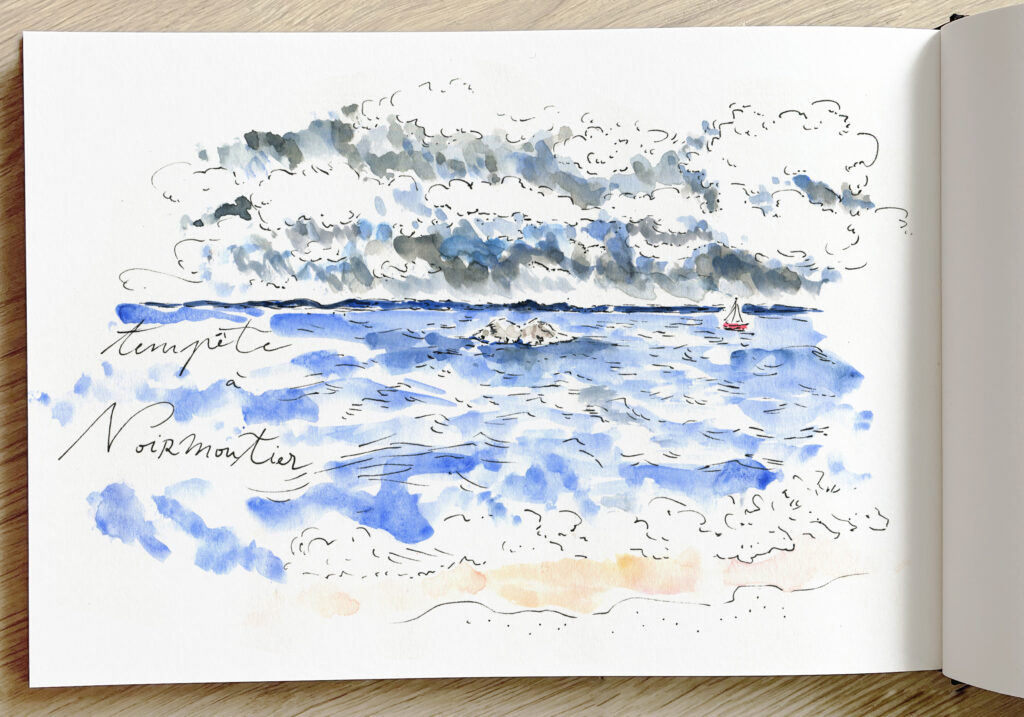 tempête
à
Noirmoutier